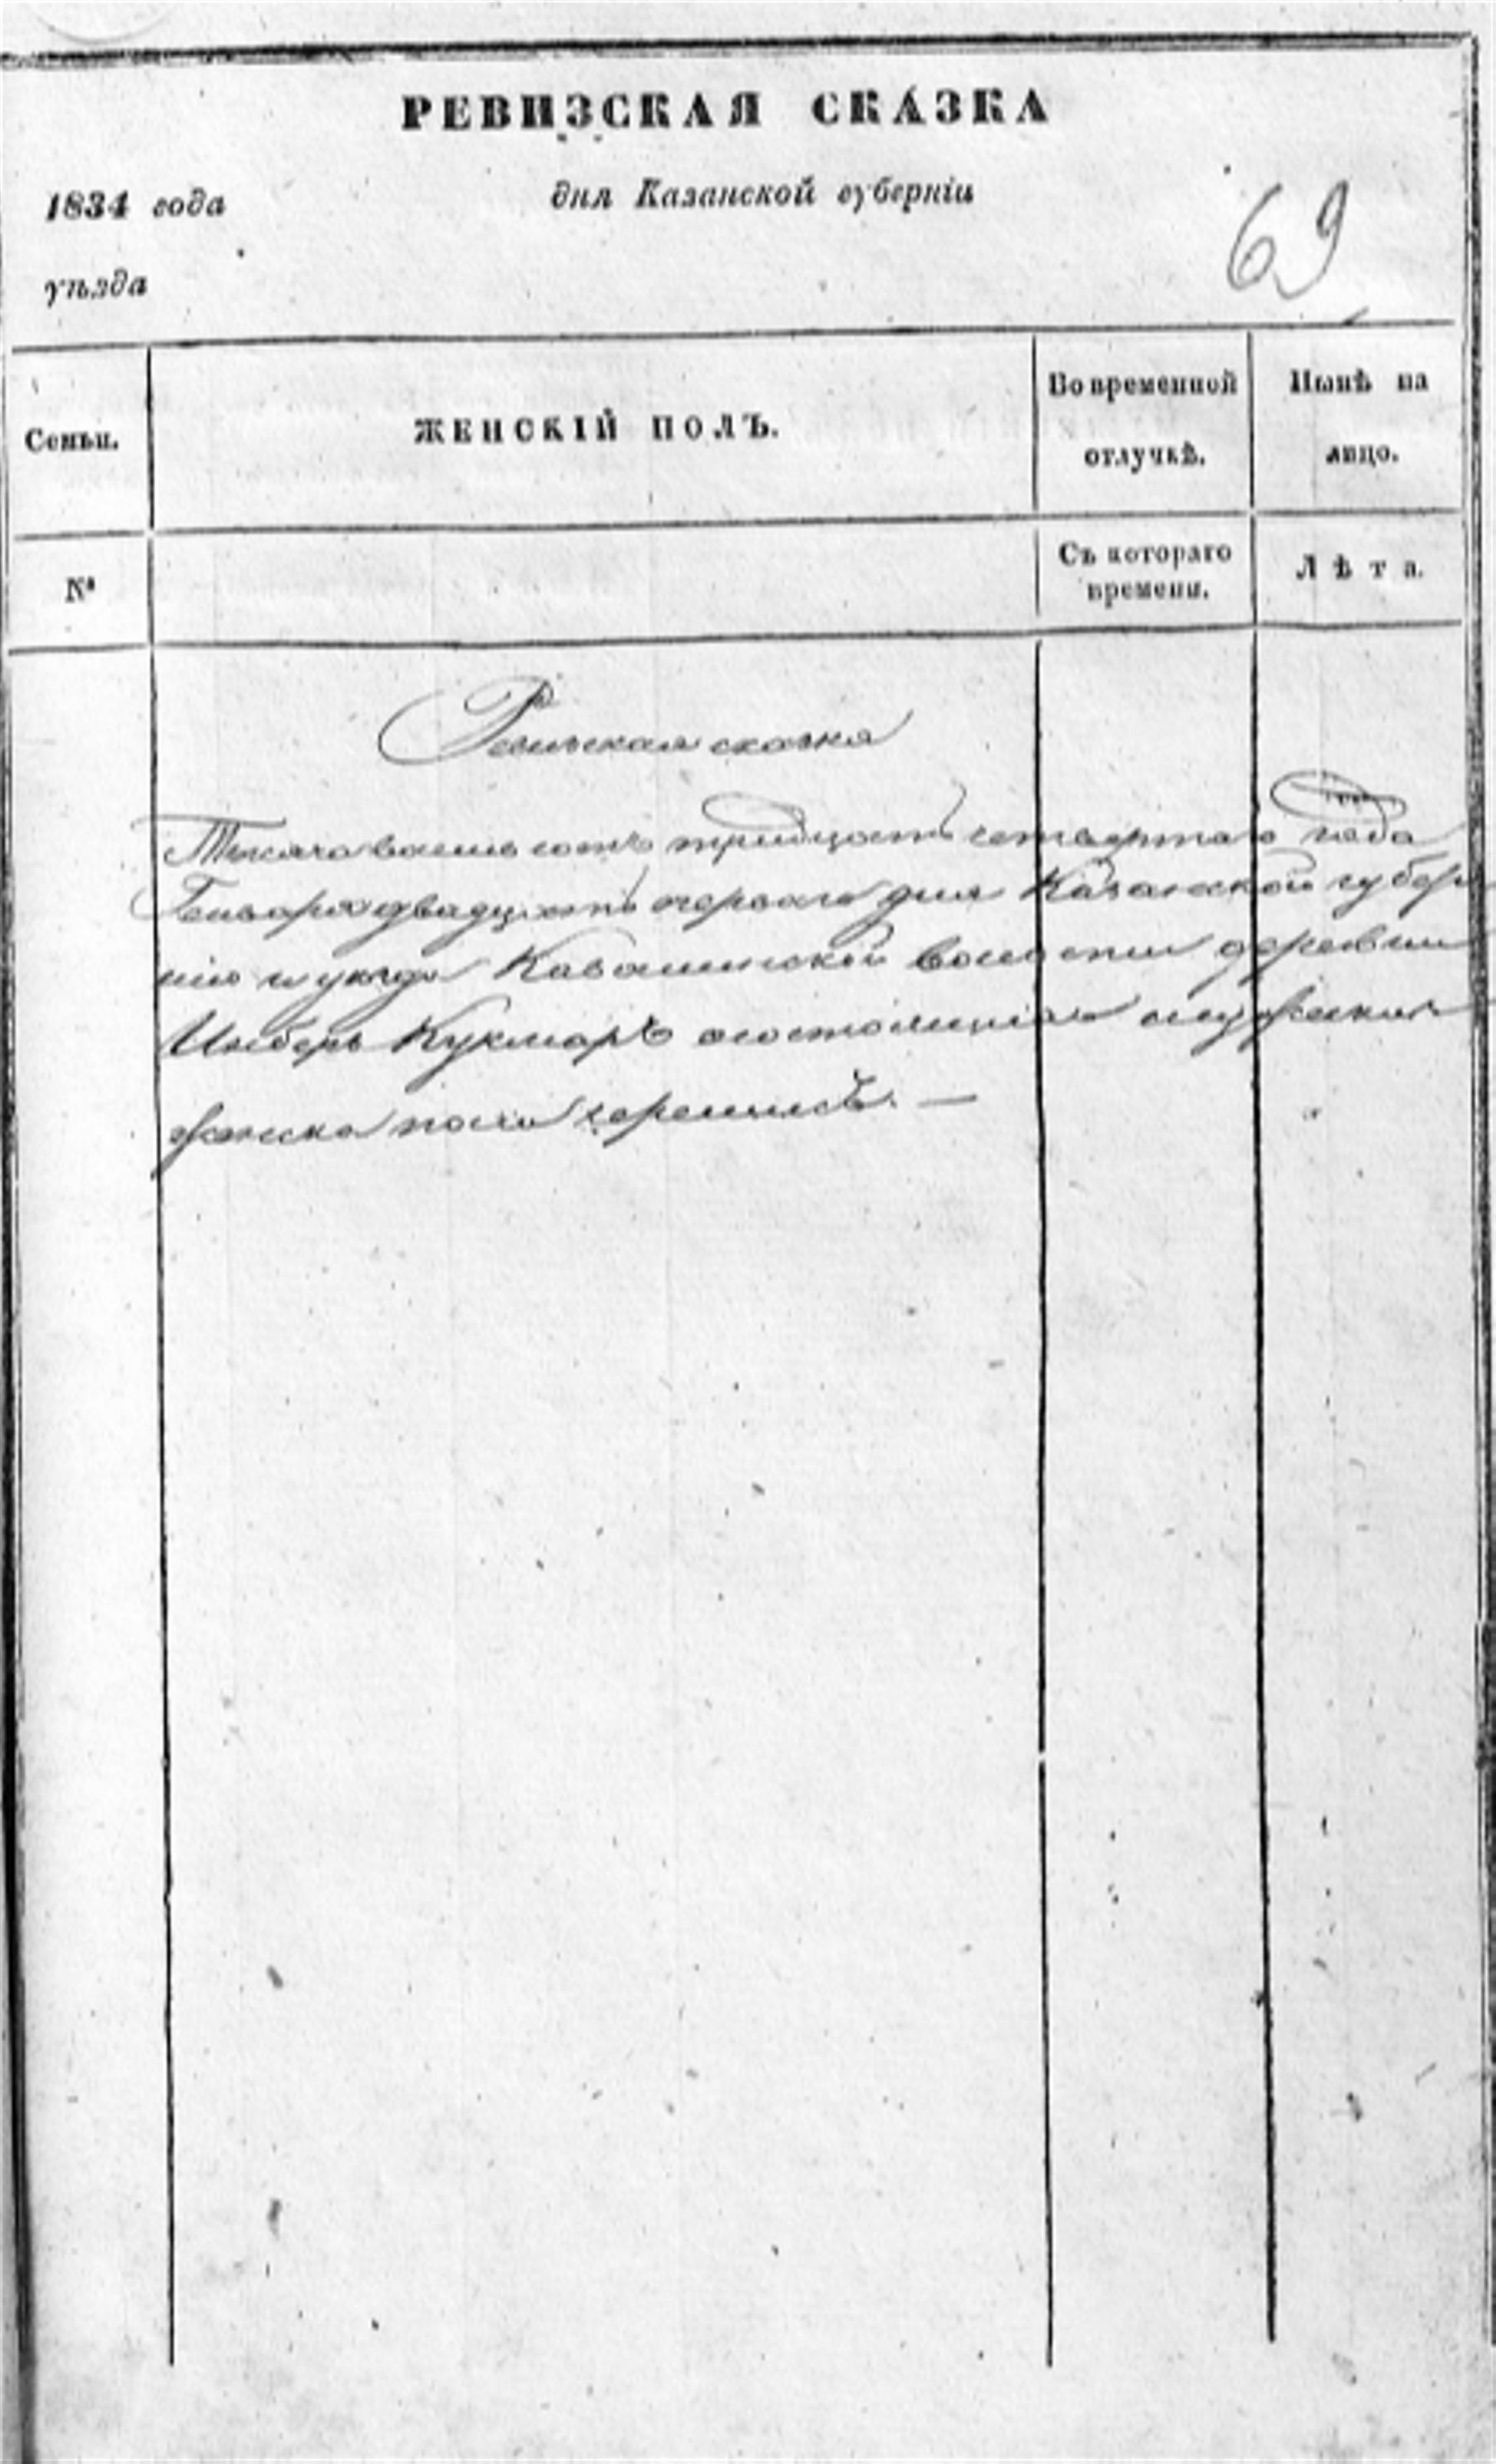 РЕВИЗСКАЯ СКАЗКА
1834 года
дня Казанской губерніи
69
уѣзда
Семьи.
ЖЕНСКІЙ ПОЛЪ.
Во временной
отлучкѣ.
Нынѣ на
лицо.
№
Съ котораго
времени.
Лѣта.
Ревизская сказка
Тысяча восемь сотъ тридцать четвертаго года
Генваря двадцать перваго дня Казанской губер
ніи и уѣзда волости деревни
Кукмаръ состоящихъ мужеска
женска пола